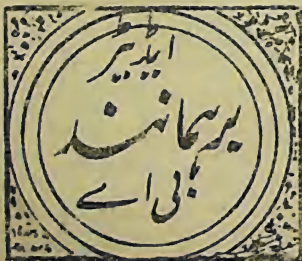 ایڈیٹر
برہمانند
بی اے